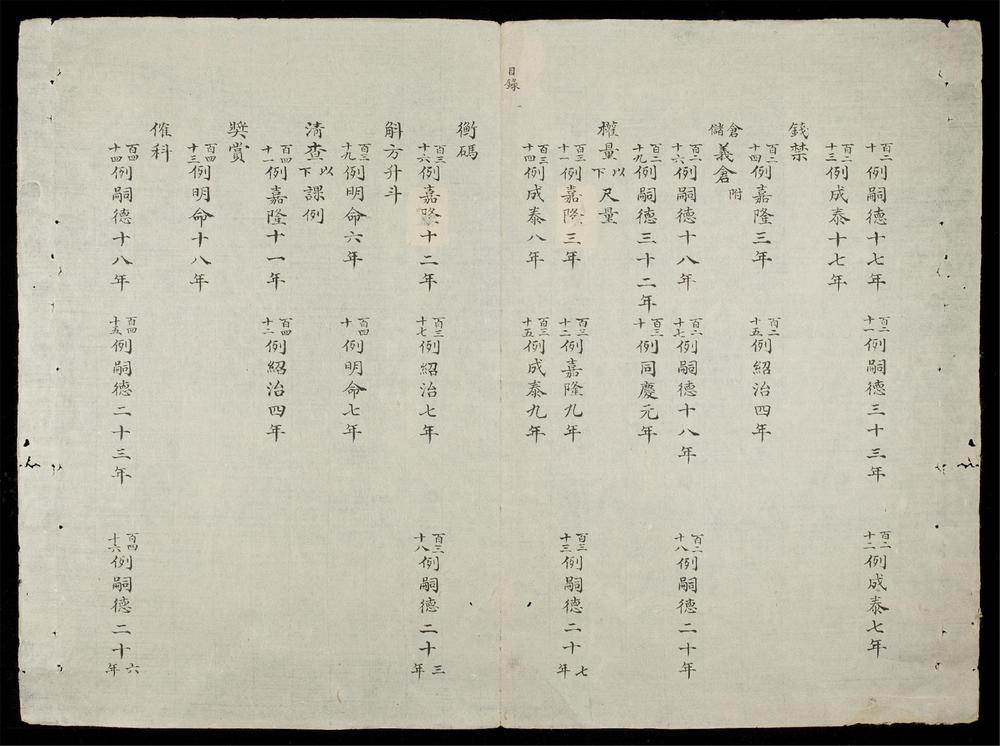 百二十例嗣德十七年 百二十一例嗣德三十三年 百二十二例成泰七年
百二十三例成泰十七年
錢禁
百二十四例嘉隆三年 百二十五例紹治四年
倉儲義倉附
百二十六例嗣德十八年 百二十七例嗣德十八年 百二十八例嗣德二十年
百二十九例嗣德三十二年 百三十例同慶元年
權量以下尺量
百三十一例嘉隆三年 百三十二例嘉隆九年 百三十三例嗣德二十七年
百三十四例成泰八年 百三十五例成泰九年
目錄
衡碼
百三十六例嘉隆十二年 百三十七例紹治七年 百三十八例嗣德二十三年
斛方升斗
百三十九例明命六年 百四十例明命七年
清查以下課例
百四十一例嘉隆十一年 百四十二例紹治四年
獎賞
百四十三例明命十八年
催科
百四十四例嗣德十八年 百四十五例嗣德二十三年 百四十六例嗣德二十六年